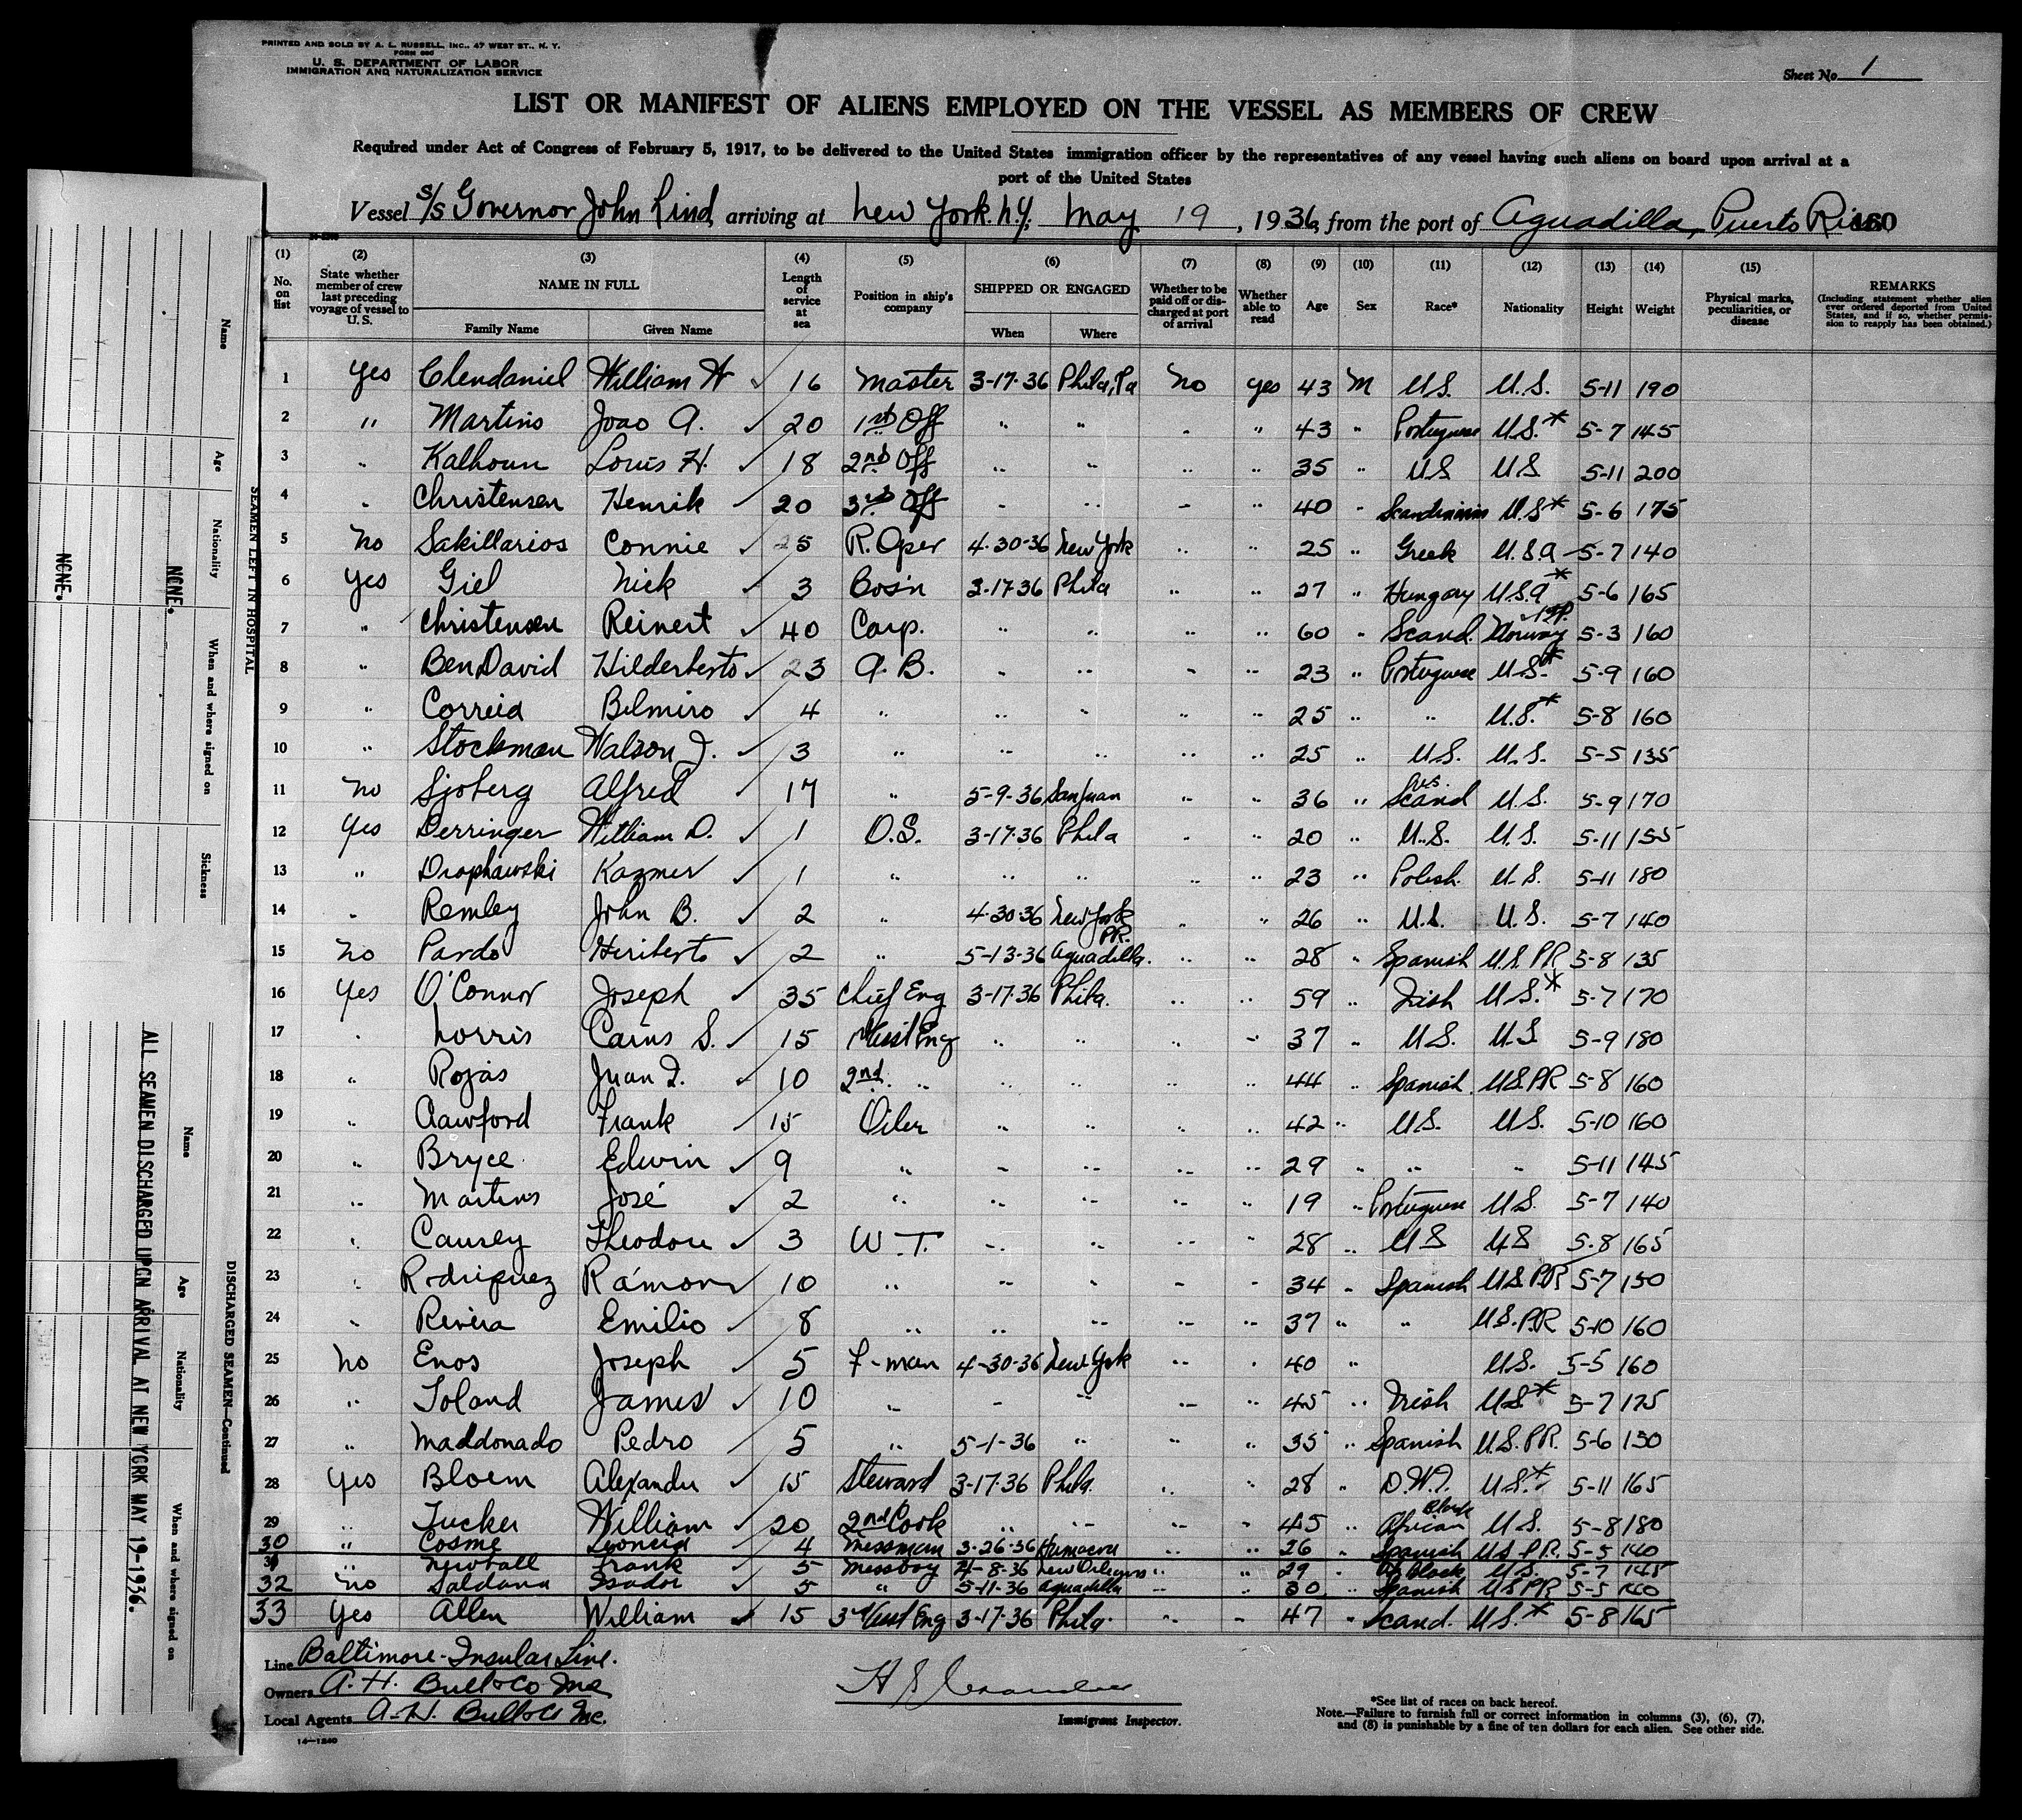 PRINTED AND SOLD BY A. L. RUSSELL, INC., 47 WEST ST., N. Y.
FORM 680
U. S. DEPARTMENT OF LABOR
IMMIGRATION AND NATURALIZATION SERVICE
Sheet No. 1
LIST OR MANIFEST OF ALIENS EMPLOYED ON THE VESSEL AS MEMBERS OF CREW
Required under Act of Congress of February 5, 1917, to be delivered to the United States immigration officer by the representatives of any vessel having such aliens on board upon arrival at a
port of the United States
Vessel S/S Governor John Lind, arriving at New York. N.Y., May 19, 1936, from the port of Aguadilla, Puerto Rico 160
(1) (2) (3) (4) (5) (6) (7) (8) (9) (10) (11) (12) (13) (14) (15)
No. on list | State whether member of crew last preceding voyage of vessel to U. S. | NAME IN FULL | Family Name | Given Name | Length of service at sea | Position in ship's company | SHIPPED OR ENGAGED | When | Where | Whether to be paid off or discharged at port of arrival | Whether able to read | Age | Sex | Race* | Nationality | Height | Weight | Physical marks, peculiarities, or disease | REMARKS (Including statement whether alien ever ordered deported from United States, and if so, whether permission to reapply has been obtained.)
1 Yes Clendaniel William W ✓ 16 Master 3-17-36 Phila, Pa No Yes 43 M U.S. U.S. 5-11 190
2 " Martins Joao A. ✓ 20 1st Off " " " " 43 " Portuguese U.S.* 5-7 145
3 " Kalhoun Louis H. ✓ 18 2nd Off " " " " 35 " US U.S 5-11 200
4 " Christensen Henrik ✓ 20 3rd Off " " " " 40 " Scandinavian U.S* 5-6 175
5 No Sakillarios Connie ✓ 5 R. Oper 4-30-36 New York " " 25 " Greek U.S.A 5-7 140
6 Yes Giel Nick ✓ 3 Bos'n 3-17-36 Phila " " 27 " Hungary U.S.A* 5-6 165
7 " Christensen Reinert ✓ 40 Carp. " " " " 60 " Scand. Norway 1st P. 5-3 160
8 " BenDavid Hilderberto ✓ 3 A.B. " " " " 23 " Portuguese U.S.* 5-9 160
9 " Correia Belmiro ✓ 4 " " " " " 25 " " U.S.* 5-8 160
10 " Stockman Walson J. ✓ 3 " " " " " 25 " U.S. U.S. 5-5 135
11 No Sjoberg Alfred ✓ 17 " 5-9-36 San Juan " " 36 " Scand U.S. 5-9 170
12 Yes Derringer William D. ✓ 1 O.S. 3-17-36 Phila " " 20 " U.S. U.S. 5-11 155
13 " Drophawski Kazmer ✓ 1 " " " " " 23 " Polish U.S. 5-11 180
14 " Remley John B. ✓ 2 " 4-30-36 New York " " 26 " U.S. U.S. 5-7 140
15 No Pardo Heriberto ✓ 2 " 5-13-36 Aguadilla PR. " " 28 " Spanish U.S. PR 5-8 135
16 Yes O'Connor Joseph ✓ 35 Chief Eng 3-17-36 Phila. " " 59 " Irish U.S.* 5-7 170
17 " Norris Carus S. ✓ 15 1st Asst Eng " " " " 37 " U.S. U.S 5-9 180
18 " Rojas Juan I. ✓ 10 2nd " " " " " 44 " Spanish US.PR 5-8 160
19 " Crawford Frank ✓ 15 Oiler " " " " 42 " U.S. U.S. 5-10 160
20 " Bryce Edwin ✓ 9 " " " " " 29 " " " 5-11 145
21 " Martins José ✓ 2 " " " " " 19 " Portuguese U.S. 5-7 140
22 " Causey Theodore ✓ 3 W.T. " " " " 28 " US US 5-8 165
23 " Rodriguez Ramon ✓ 10 " " " " " 34 " Spanish U.S. P.R 5-7 150
24 " Rivera Emilio ✓ 8 " " " " " 37 " " U.S. P.R 5-10 160
25 No Enos Joseph ✓ 5 F-man 4-30-36 New York " " 40 " U.S. 5-5 160
26 " Toland James ✓ 10 " " " " " 45 " Irish US* 5-7 175
27 " Maldonado Pedro ✓ 5 " 5-1-36 " " " 35 " Spanish U.S. PR. 5-6 150
28 Yes Bloem Alexander ✓ 15 Steward 3-17-36 Phila. " " 28 " D.W.I. U.S.* 5-11 165
29 " Tucker William ✓ 20 2nd Cook " " " " 45 " African Black U.S. 5-8 180
30 " Cosme Leoncia ✓ 4 Messman 3-26-36 Humacoa " " 26 " Spanish U.S. P.R. 5-5 140
31 " Newhall Frank ✓ 5 Messboy 4-8-36 New Orleans " " 29 " Af. black U.S. 5-7 145
32 No Saldana Isador ✓ 5 " 5-11-36 Aguadilla " " 30 " Spanish US PR 5-5 140
33 Yes Allen William ✓ 15 3rd Asst Eng 3-17-36 Phila. " " 47 " Scand. U.S.* 5-8 165
Line Baltimore-Insular Line.
Owners A. H. Bull & Co Inc
Local Agents A. H. Bull & Co Inc.
14—1240
Immigrant Inspector.
*See list of races on back hereof.
Note.—Failure to furnish full or correct information in columns (3), (6), (7),
and (8) is punishable by a fine of ten dollars for each alien. See other side.
SEAMEN LEFT IN HOSPITAL
Name Age Nationality When and where signed on Sickness
NONE.
NONE.
DISCHARGED SEAMEN—Continued
Name Age Nationality When and where signed on
ALL SEAMEN DISCHARGED UPON ARRIVAL AT NEW YORK MAY 19-1936.